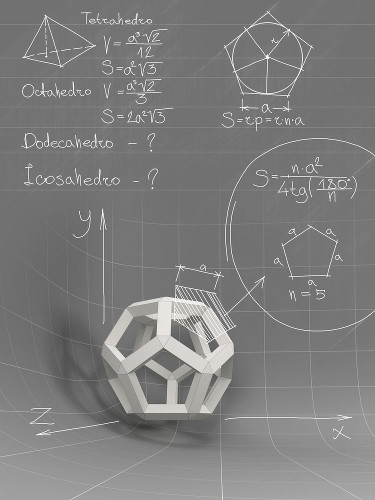 Tetrahedro
V = a³√2 / 12
S = a²√3
Octahedro V = a³√2 / 3
S = 2a²√3
Dodecahedro - ?
Icosahedro - ?
r
a
S = rp = r·n·a
S = n·a² / 4tg(180° / n)
a a
a a
a
n = 5
y
a
z
x